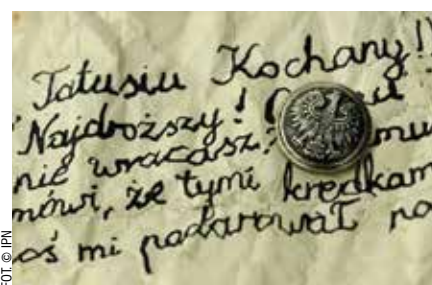 Tatusiu Kochany!
Najdroższy!
nie wracasz?
mówi, że tymi kredkam
oś mi podarował na
FOT. © IPN